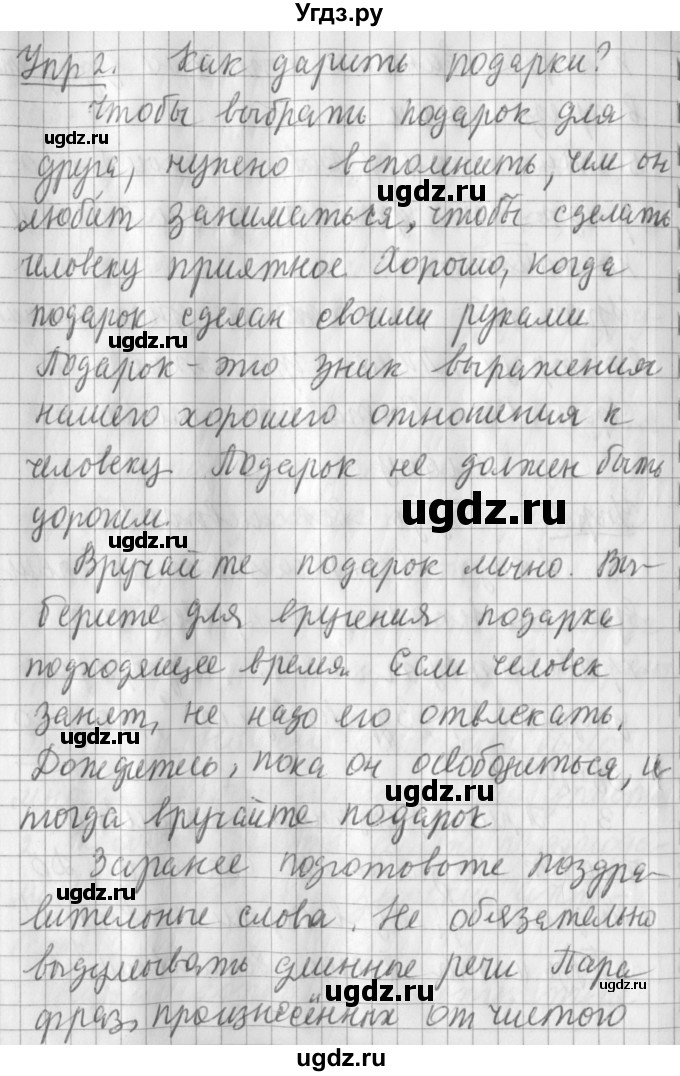 Угдз.ру
Упр 2. Как дарить подарки?
Чтобы выбрать подарок для
ugdz.ru
друга, нужно вспомнить, чем он
ugdz.ru
любит заниматься, чтобы сделать
человеку приятное Хорошо, когда
подарок сделан своими руками
ugdz.ru
Подарок - это знак выражения
нашего хорошего отношения к
человеку. Подарок не должен быть
ugdz.ru
дорогим.
Вручайте подарок лично. Вы-
берите для вручения подарка
подходящее время. Если человек
занят, не надо его отвлекать.
ugdz.ru
Дождитесь, пока он освободиться, и
ugdz.ru
тогда вручайте подарок
Заранее подготовьте поздра-
ugdz.ru
вительные слова. Не обязательно
выдумывать длинные речи Пара
ugdz.ru
ugdz.ru
фраз, произнесённых от чистого
ugdz.ru